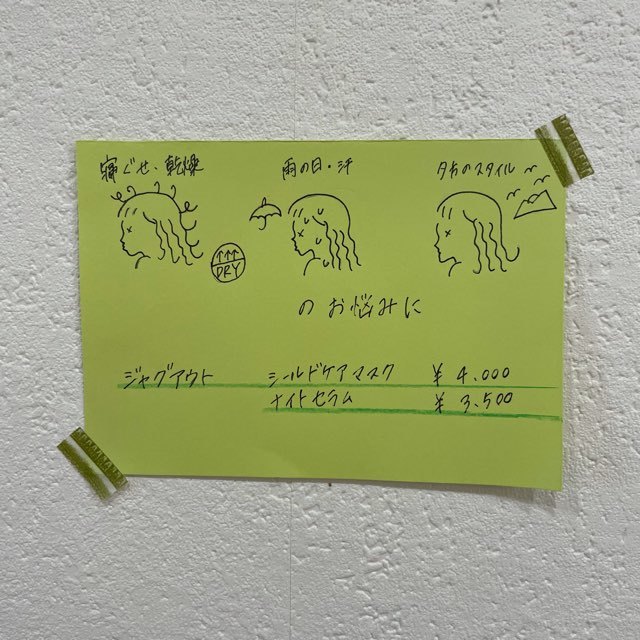 寝ぐせ、乾燥
雨の日・汗
夕方のスタイル
↑↑↑
DRY
のお悩みに
ジャグアウト シールドケアマスク ¥4.000
ナイトセラム ¥3.500